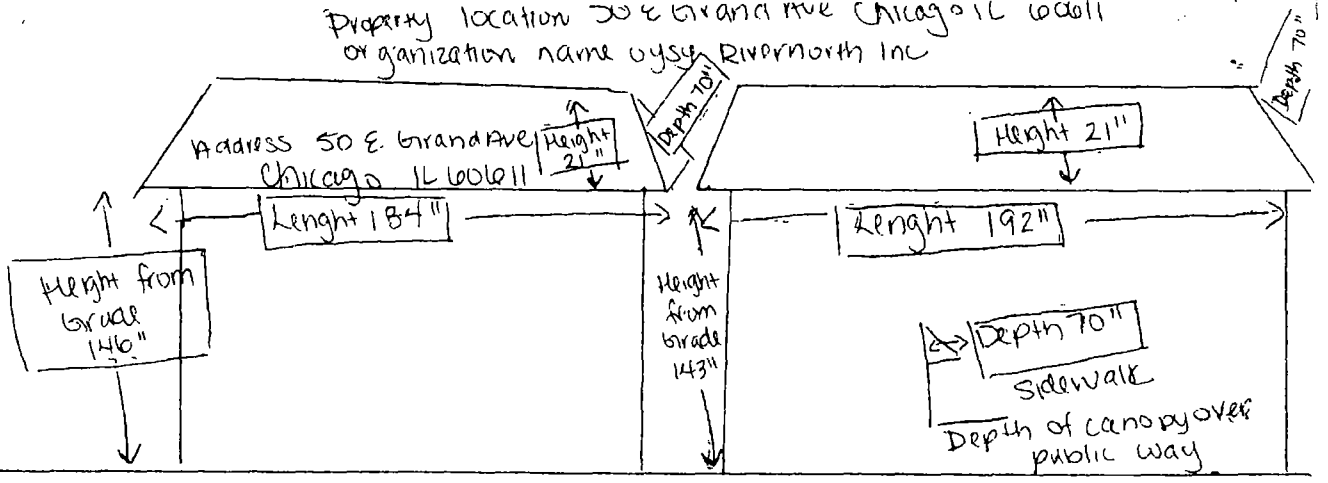 Property location 50 E Grand Ave Chicago IL 60611
organization name oysy Rivernorth Inc
Address 50 E. Grand Ave
Chicago IL 60611
Height
21"
Depth 70"
Height 21"
Depth 70"
Lenght 184"
Lenght 192"
Height from
Grade
146"
Height
from
Grade
143"
Depth 70"
sidewalk
Depth of canopy over
public way